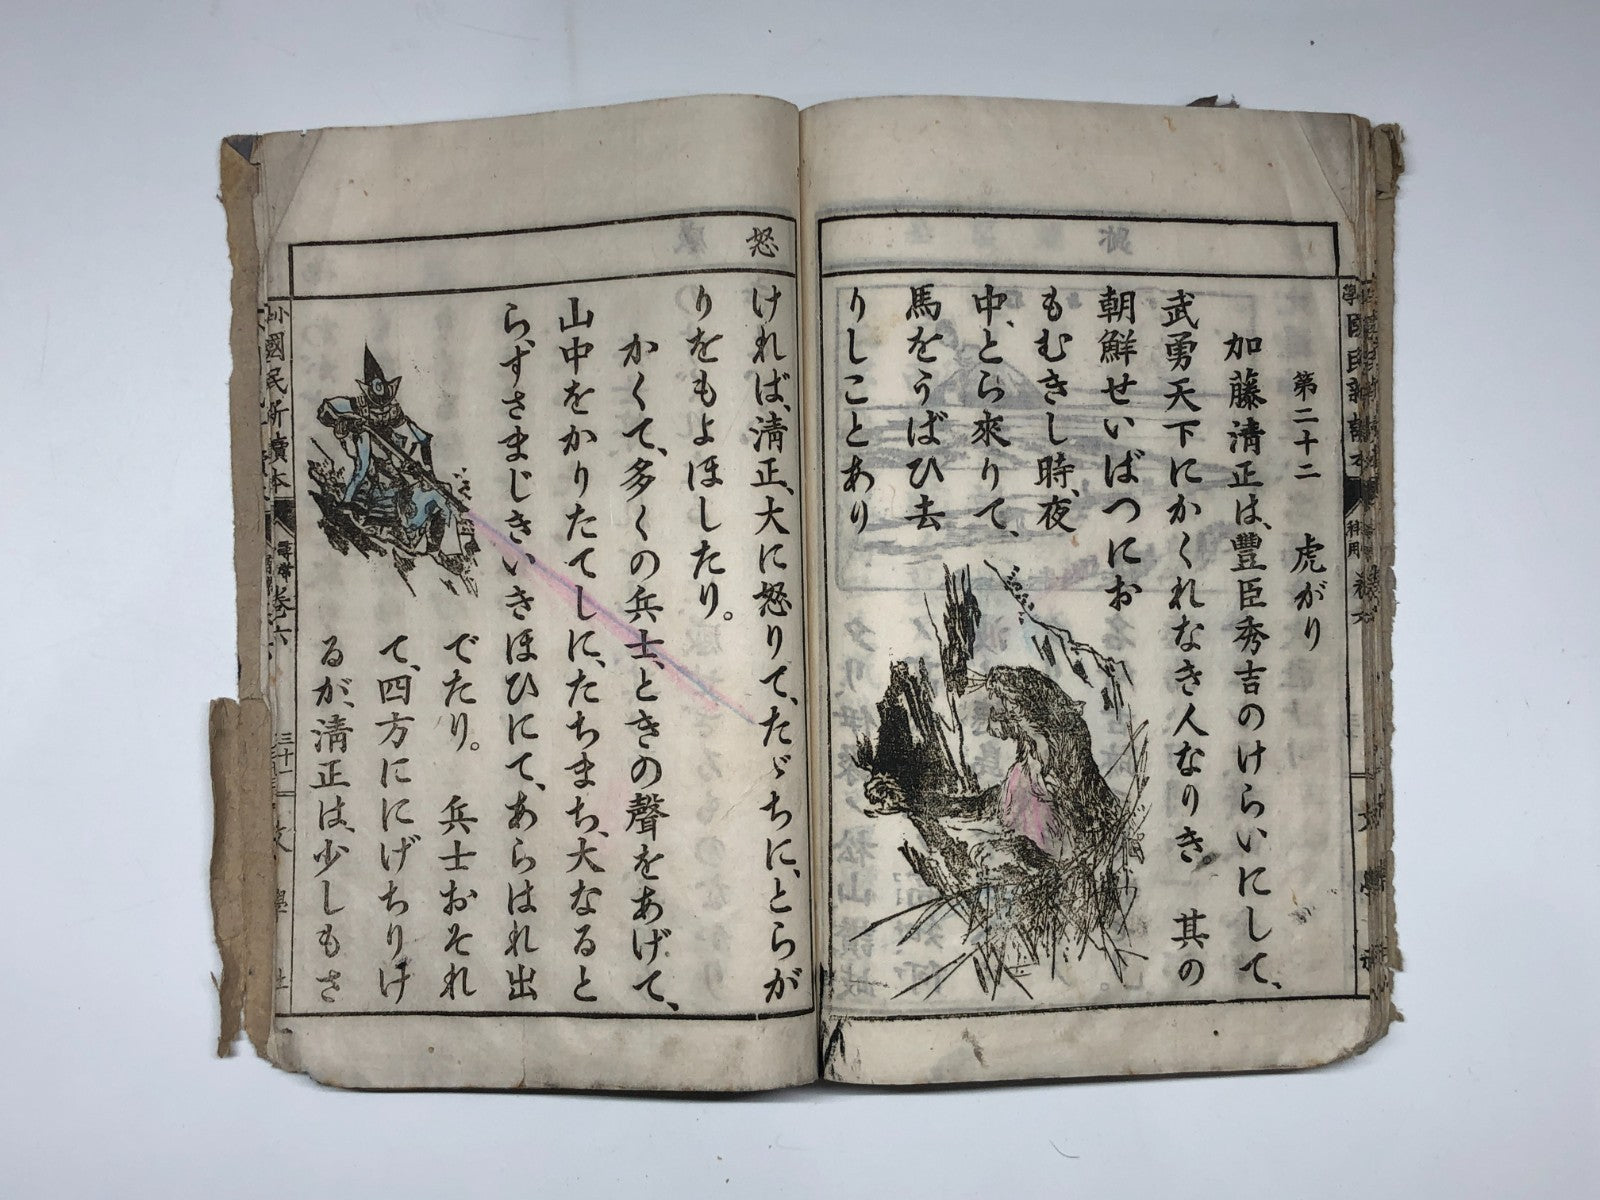 第二十二 虎がり
加藤清正は、豐臣秀吉のけらいにして、
武勇天下にかくれなき人なりき 其の
朝鮮せいばつにお
もむきし時、夜
中、とら來りて、
馬をうばひ去
りしことあり
怒
ければ、淸正、大に怒りて、たゞちに、とらが
りをもよほしたり。
かくて、多くの兵士、ときの聲をあげて、
山中をかりたてしに、たちまち、大なると
ら、すさまじきいきほひにて、あらはれ出
でたり。 兵士おそれ
て、四方ににげちりけ
るが、淸正は、少しもさ
小國民新讀本
尋常
卷六
三十一
文學社